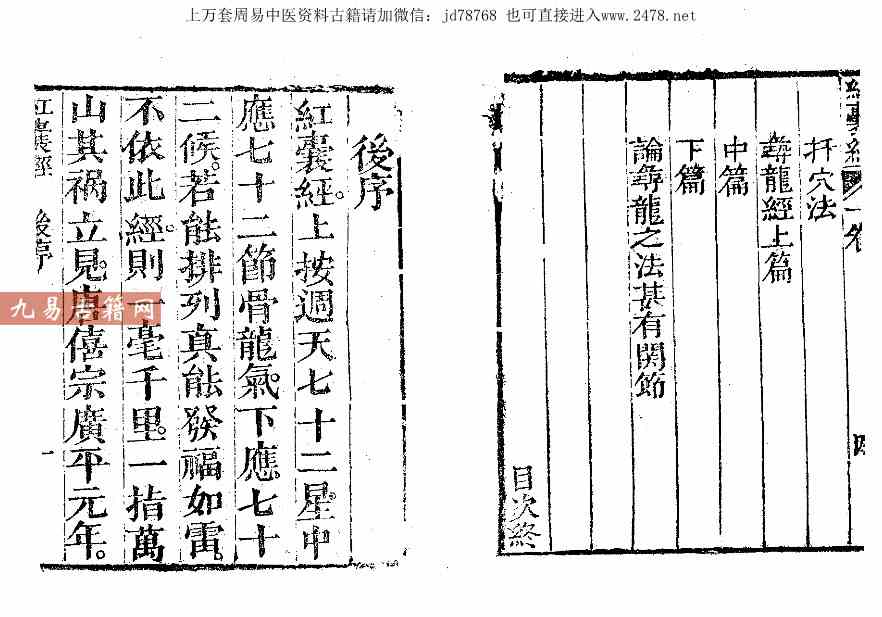 上万套周易中医资料古籍请加微信：jd78768 也可直接进入www.2478.net
紅囊經 一卷
扦穴法
尋龍經上篇
中篇
下篇
論尋龍之法甚有関節
目次終
四
後序
紅囊經。上按週天七十二星。中
應七十二節骨龍氣。下應七十
二候。若能排列真能發福如雷。
不依此經。則一毫千里。一指萬
山其禍立見。唐僖宗廣平元年。
紅囊經 後序
一
九易古籍网